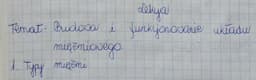 Lekcja
Temat: Budowa i funkcjonowanie układu
mięśniowego.
1. Typy mięśni